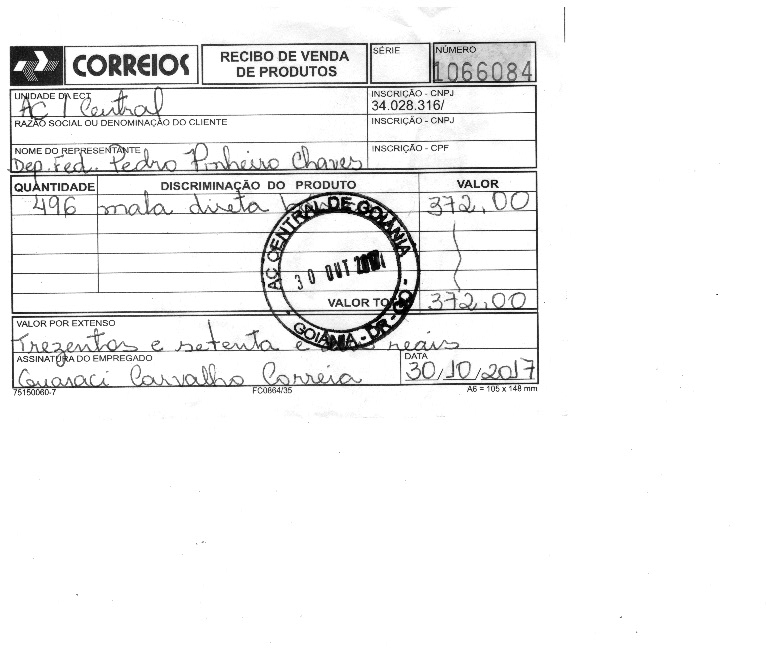 CORREIOS
RECIBO DE VENDA DE PRODUTOS
SÉRIE
NÚMERO
1066084
UNIDADE DA ECT
AC / Central
INSCRIÇÃO - CNPJ
34.028.316/
RAZÃO SOCIAL OU DENOMINAÇÃO DO CLIENTE
INSCRIÇÃO - CNPJ
NOME DO REPRESENTANTE
Dep. Fed. Pedro Pinheiro Chaves
INSCRIÇÃO - CPF
QUANTIDADE DISCRIMINAÇÃO DO PRODUTO VALOR
496 mala direta 372,00
AC CENTRAL DE GOIÂNIA
30 OUT 2017
GOIÂNIA - DR - GO -
VALOR TO 372,00
VALOR POR EXTENSO
Trezentos e setenta e reais
ASSINATURA DO EMPREGADO
Guaraci Carvalho Correia
DATA
30/10/2017
75150060-7 FC0864/35 A6 = 105 x 148 mm